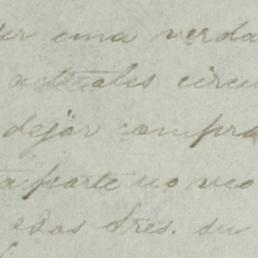 er una verda
actuales circu
dejar compra
parte no veo
edos Sres. su